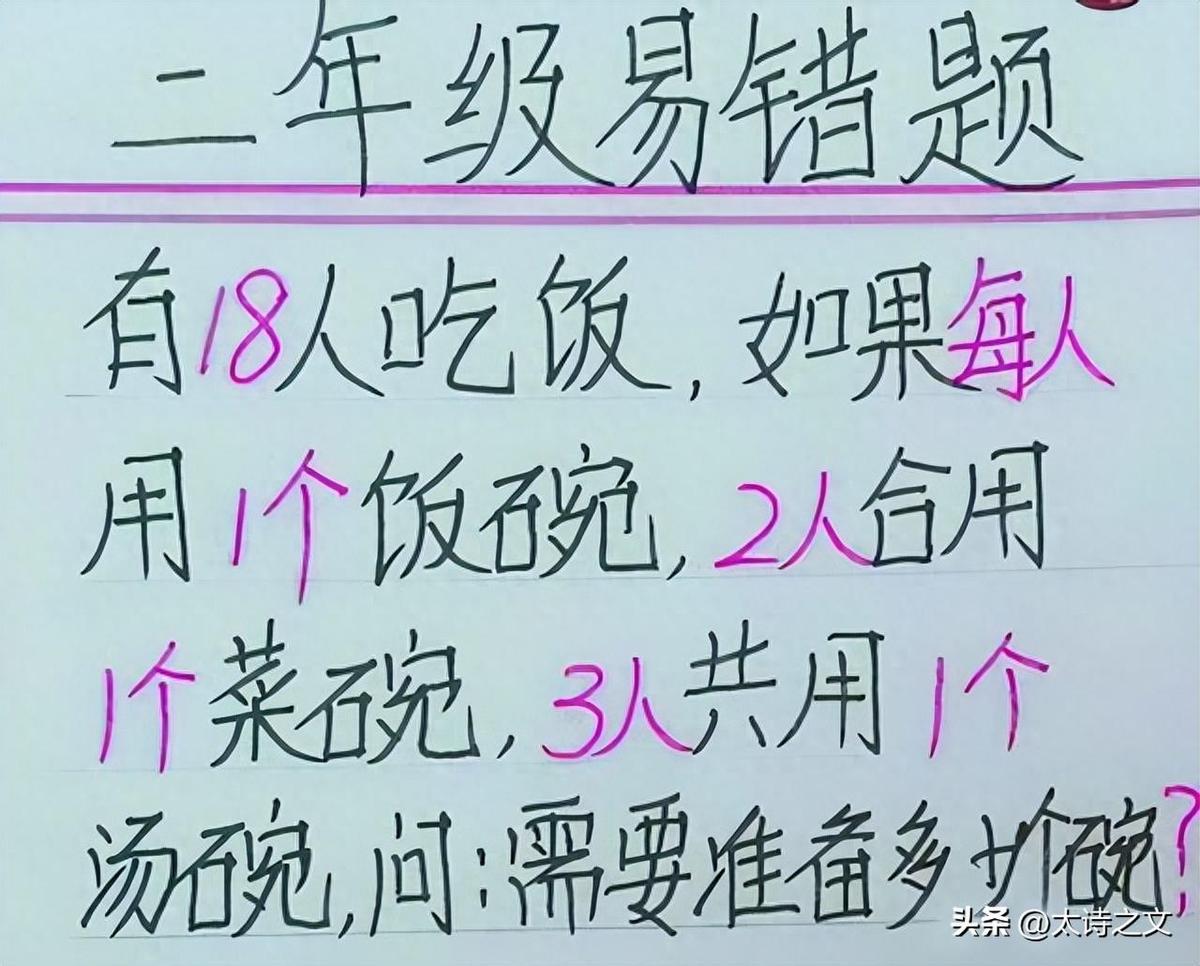 二年级易错题
有18人吃饭,如果每人
用1个饭碗,2人合用
1个菜碗,3人共用1个
汤碗,问:需要准备多少个碗?
头条 @太诗之文